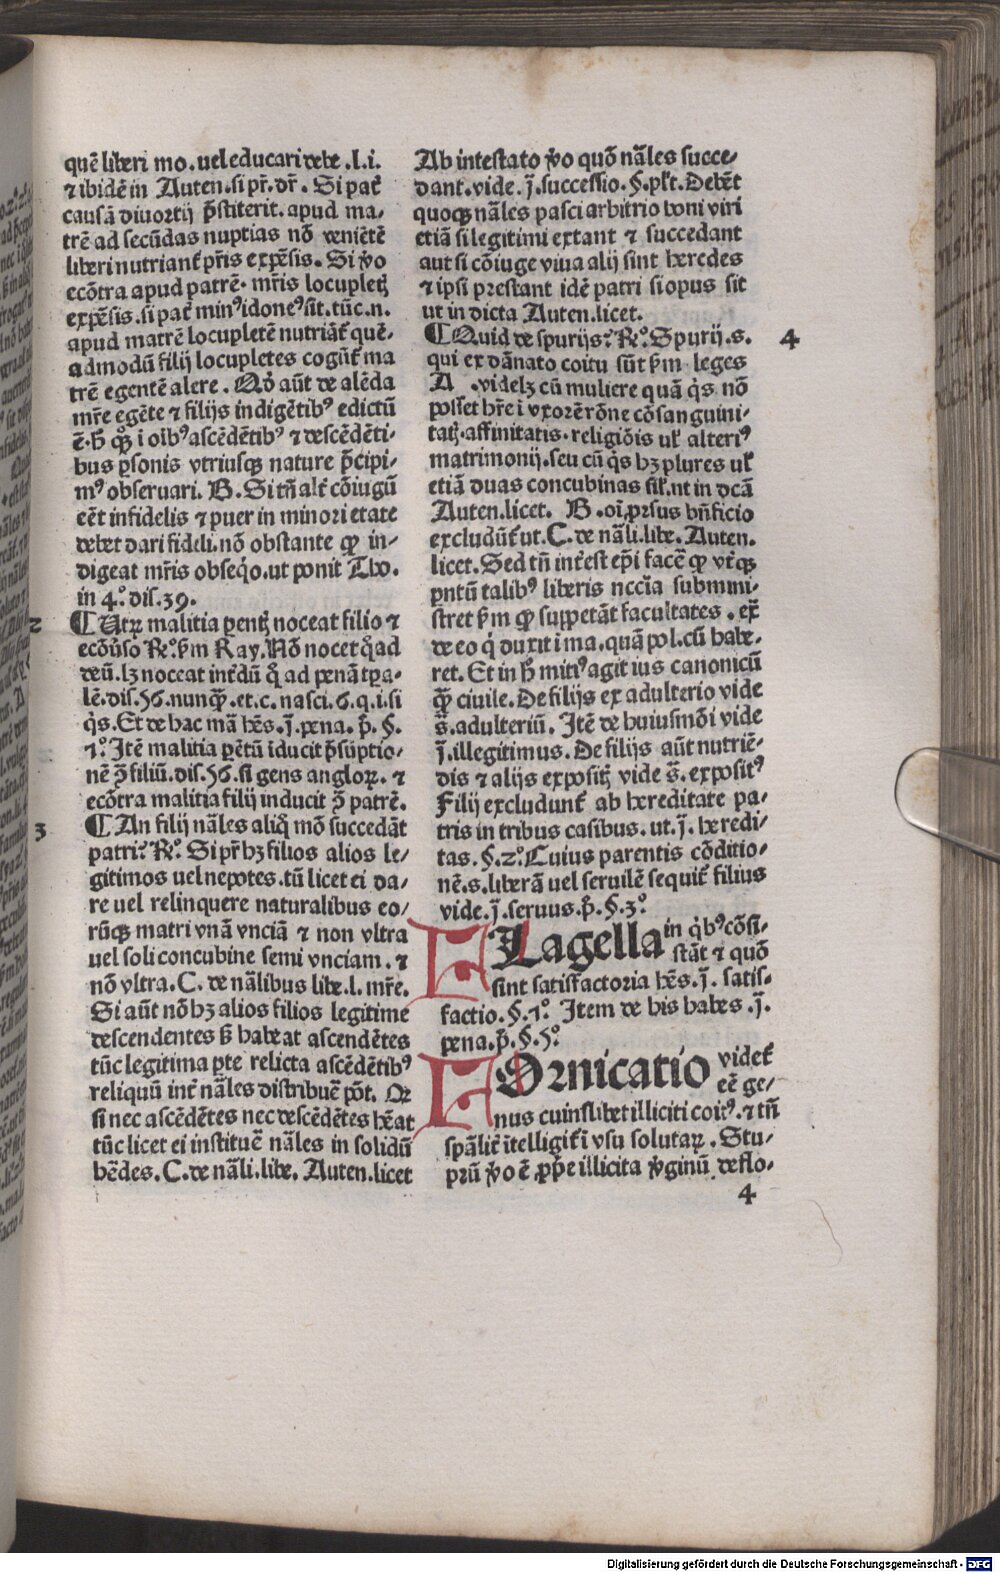 quē liberi mo. uel educari debe .l.i.
⁊ ibidē in Auten. si pr̄. dr̄. Si pat̄
causā diuortij p̄stiterit. apud ma-
trē ad secūdas nuptias nō veniētē
liberi nutriant̄ pr̄is expēsis. Si v̄o
ecōtra apud patrē. mr̄is locupletꝫ
expēsis. si pat̄ minꝰ idoneꝰ sit. tūc .n.
apud matrē locupletē nutriāt̄ quē-
admodū filij locupletes cogūt̄ ma
trē egentē alere. Qd̓ aūt de alēda
mr̄e egēte ⁊ filijs indigētibꝰ edictū
ē. h̄ ꝙ̄ i oībꝰ ascēdētibꝰ ⁊ descēdēti-
bus ꝑsonis vtriusqꝫ nature p̄cipi-
mꝰ obseruari. B. Si tn̄ alt̄ cōiugū
eēt infidelis ⁊ puer in minori etate
debet dari fideli. nō obstante ꝙ in-
digeat mr̄is obseq̇o. ut ponit Tho.
in 4.º dis. 39.
2
¶ Utꝝ malitia ꝑentꝫ noceat filio ⁊
ecōuerso Rº. ẜm Ray. Nō nocet q̄ad
deū. lꝫ noceat int̄dū q̄ ad penā tꝑa-
lē. dis. 56. nunqꝫ. et. c. nasci. 6. q. i. si
q̇s. Et de hac mā hēs. j̄. pena. p̄. §.
1.º Itē malitia ꝑētū iducit p̄sūptio-
nē ꝓ̄ filiū. dis. 56. si gens angloꝝ. ⁊
ecōtra malitia filij inducit ꝓ̄ patrē.
3
¶ An filij nāles aliq̊ mō succedāt
patri? Rº. Si pr̄ hꝫ filios alios le-
gitimos uel nepotes. tū licet ei da-
re uel relinquere naturalibus eo-
rūqꝫ matri vnā vnciā ⁊ non vltra
uel soli concubine semi vnciam. ⁊
nō vltra. C. de nālibus libe. l. mr̄e.
Si aūt nō hꝫ alios filios legitime
descendentes sꝫ habeat ascendētes
tūc legitima ꝑte relicta ascēdētibꝰ
reliquū int̄ nāles distribuē pōt. Qꝫ
si nec ascēdētes nec descēdētes hēat
tūc licet ei instituē nāles in solidū
hēdes. C. de nāli. libe. Auten. licet
Ab intestato v̄o quō nāles succe-
dant. vide. j̄. successio. §. pl̄t. Debēt
quoqꝫ nāles pasci arbitrio boni viri
etiā si legitimi extant ⁊ succedant
aut si cōiuge viua alij sint heredes
⁊ ipsi prestant idē patri si opus sit
ut in dicta Auten. licet.
4
¶ Quid de spurijs? Rº. Spurij. s.
qui ex dānato coitu sūt ẜm leges
A . videlꝫ cū muliere quā q̇s nō
posset hr̄e i vxorē rōne cōsanguini-
tatꝫ. affinitatis. religiōis ul̄ alteriꝰ
matrimonij. seu cū q̇s hꝫ plures ul̄
etiā duas concubinas sil̄. nt in dcā
Auten. licet. B. oī ꝓrsus bn̄ficio
excludūt̄ ut. C. de nāli. libe. Auten.
licet. Sed tn̄ int̄est ep̄i facē ꝙ vt̄qꝫ
pn̄tū talibꝰ liberis nccīa submini-
stret ẜm ꝙ suppetāt facultates. ex̄
de eo q̇ duxit i ma. quā pol. cū habe-
ret. Et in h̄ mitiꝰ agit ius canonicū
qꝫ ciuile. De filijs ex adulterio vide
s̄. adulteriū. Itē de huiusmōi vide
j̄. illegitimus. De filijs aūt nutriē-
dis ⁊ alijs expositꝫ vide s̄. expositꝰ
Filij excludunt̄ ab hereditate pa-
tris in tribus casibus. ut. j̄. heredi-
tas. §. 2.º Cuius parentis cōditio-
nē. s. liberā uel seruilē sequit̄ filius
vide. j̄. seruus. p̄. §. 3.º
FLagella in q̇bꝰ cōsi-
stāt ⁊ quō
sint satisfactoria hēs. j̄. satis-
factio. §. 1.º Item de his habes. j̄.
pena. p̄. §. 5.º
FOrnicatio videt̄
eē ge-
nus cuiuslibet illiciti coitꝰ. ⁊ tn̄
spālit̄ itelligit̄ i vsu solutaꝝ. Stu-
prū v̄o ē ꝓp̄e illicita v̄ginū deflo-
4
Digitalisierung gefördert durch die Deutsche Forschungsgemeinschaft - DFG